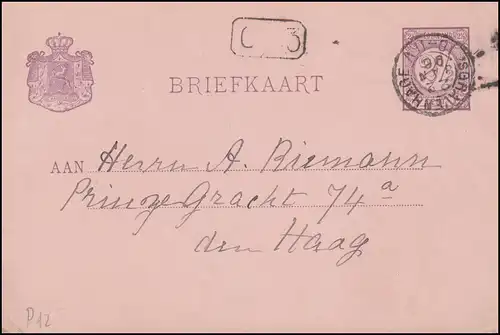 C 3
BRIEFKAART
AAN Herrn A. Riemann
Prinze Gracht 74 a
den Haag
P12